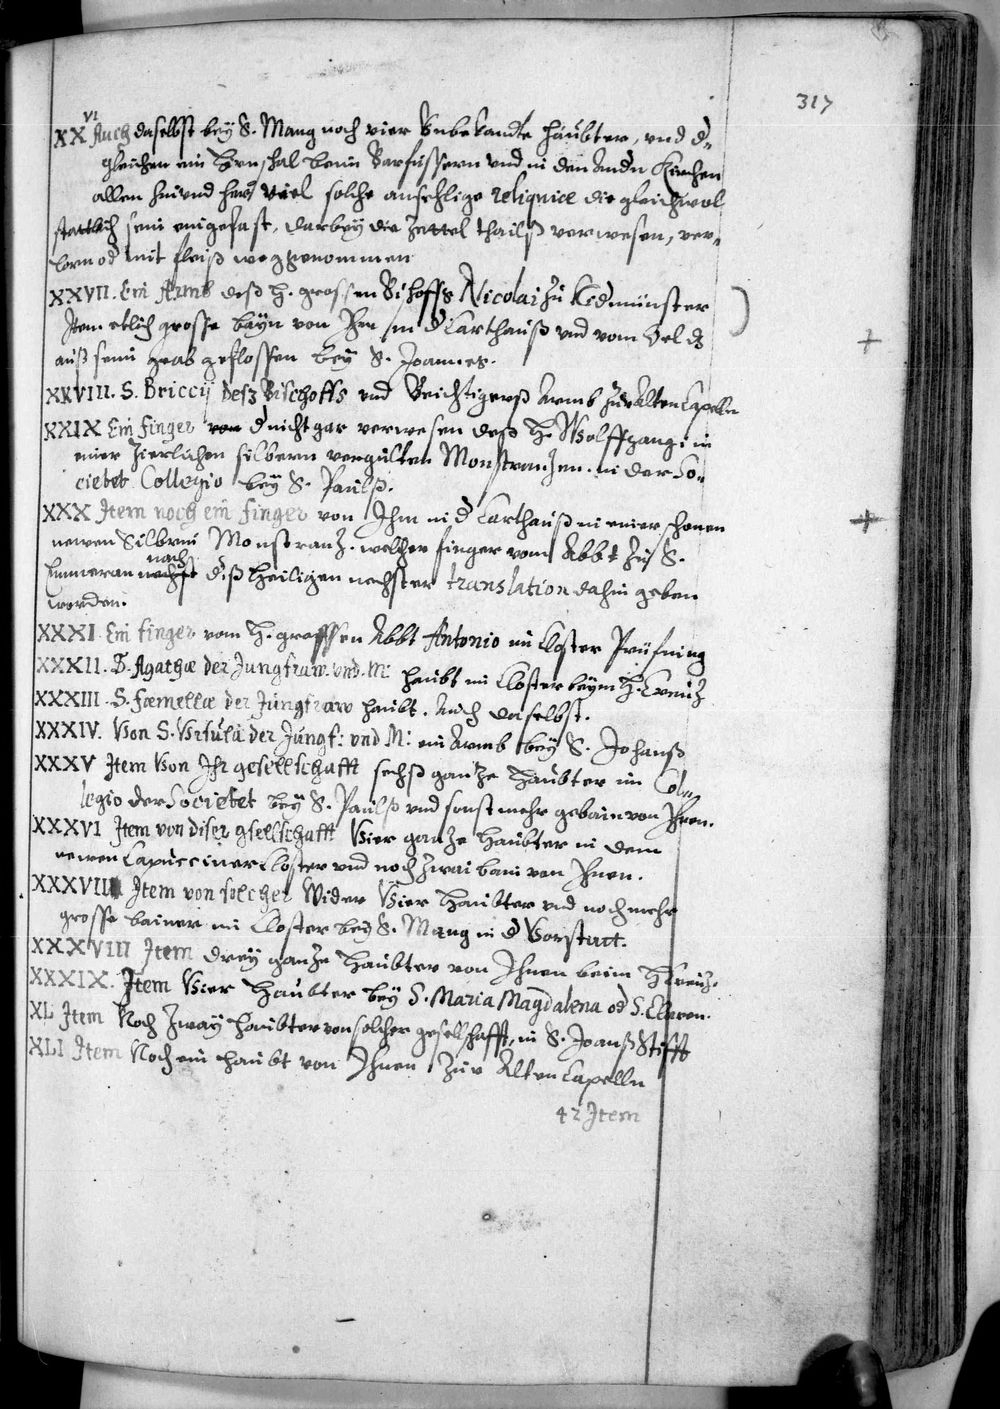 317
XXVI Auch daselbst bey S. Mang noch vier Unbekandte häubter, vnd d~
gleichen ein hirnschal beim Barfussern vnd in den Andn Kirchen
allen hin vnd her viel solche ansehlige reliquiae die gleichwol
stattlich sein eingefast, darbey die Zettel thailß verwesen, ver-
lorn od mit fleiß weggenommen
XXVII. Ein Armb deß H. grossen Bishoffs Nicolai zu Nidmünster
Item etlich grosse bayn von Ihm in d Carthauß vnd vom Oel ds
auß seim grab geflossen bey S. Joannes.
XXVIII. S. Briccij desz Bischoffs vnd Beichtigerß Armb zur Alten Capelln
XXIX Ein finger von d nicht gar verwesen deß H. Wolffgangi in
einer zierlichen silbern vergulten Monstranzen. in der So-
cietet Collegio bey S. Paulß.
XXX Item noch ein finger von Ihm in d Carthauß in einer schonen
newen Silbrnn Monstranz. welcher finger vom Abbt zu S.
Emmeran nechst nach diß Heiligen nechster translation dahin geben
worden.
XXXI. Ein finger vom H. grossen Abbt Antonio im Closter Prüfning
XXXII. S. Agathae der Jungfraw. vnd. M: haubt im Closter beym H. Creutz
XXXIII. S. Foemellae der Jungfraw haubt. Auch daselbst.
XXXIV. Von S. Vrsula der Jungf: vnd M: ein Armb bey S. Johanß
XXXV Item Von Ihr gesellschafft sechß gantze häubter im Col-
legio der Societet bey S. Paulß vnd sonst mehr gebain von Ihnen.
XXXVI Item von diser gsellschafft Vier gantze Haubter in dem
newen Capucciner Closter vnd noch zwai bain von Ihnen.
XXXVII Item von solcher Wider Vier Haubter vnd noch mehr
grosse bainer im Closter bey S. Mang in d Vorstatt.
XXXVIII Item drey gantze Haubter von Ihnen beim H Creutz.
XXXIX. Item Vier Haubter bey S. Maria Magdalena od S. Claren.
XL Item Noch zway haubter von solcher gesellschafft, in S. Joanß Stifft
XLI Item Noch ein haubt von Ihnen zur Alten Capelln
42 Item